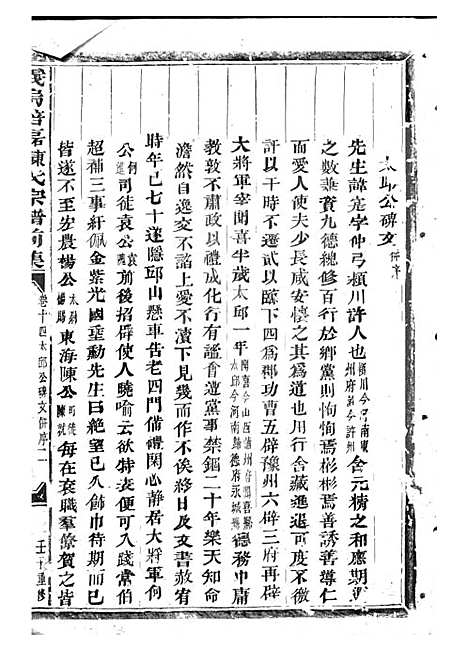 太邱公碑文 併序
先生諱寔字仲弓潁川許人也 潁川今河南東州府許今許州 含元精之和應期運
之數兼資九德總修百行於鄉黨則恂恂焉彬彬焉善誘善導仁
而愛人使夫少長咸安懷之其為道也用行舍藏進退可度不徼
訐以干時不遷貳以臨下四為郡功曹五辟豫州六辟三府再辟
大將軍宰聞喜半歲太邱一年 聞喜今山西蒲州府聞喜縣太邱今河南歸德府永城縣 德務中庸
教敦不肅政以禮成化行有謐會遭黨事禁錮二十年樂天知命
澹然自逸交不諂上愛不瀆下見幾而作不俟終日及文書赦宥
時年已七十遂隱邱山懸車告老四門備禮閑心靜居大將軍何
公 進 司徒袁公 隗 前後招辟使人曉喻云欲特表便可入踐常伯
超補三事紆佩金紫光國垂勳先生曰絕望已久飾巾待期而已
皆遂不至宏農楊公 太尉楊賜 東海陳公 司徒陳耽 每在袞職羣僚賀之皆
義烏 陳氏宗譜 集 卷十四 太邱公碑文併序 二 壬 重修